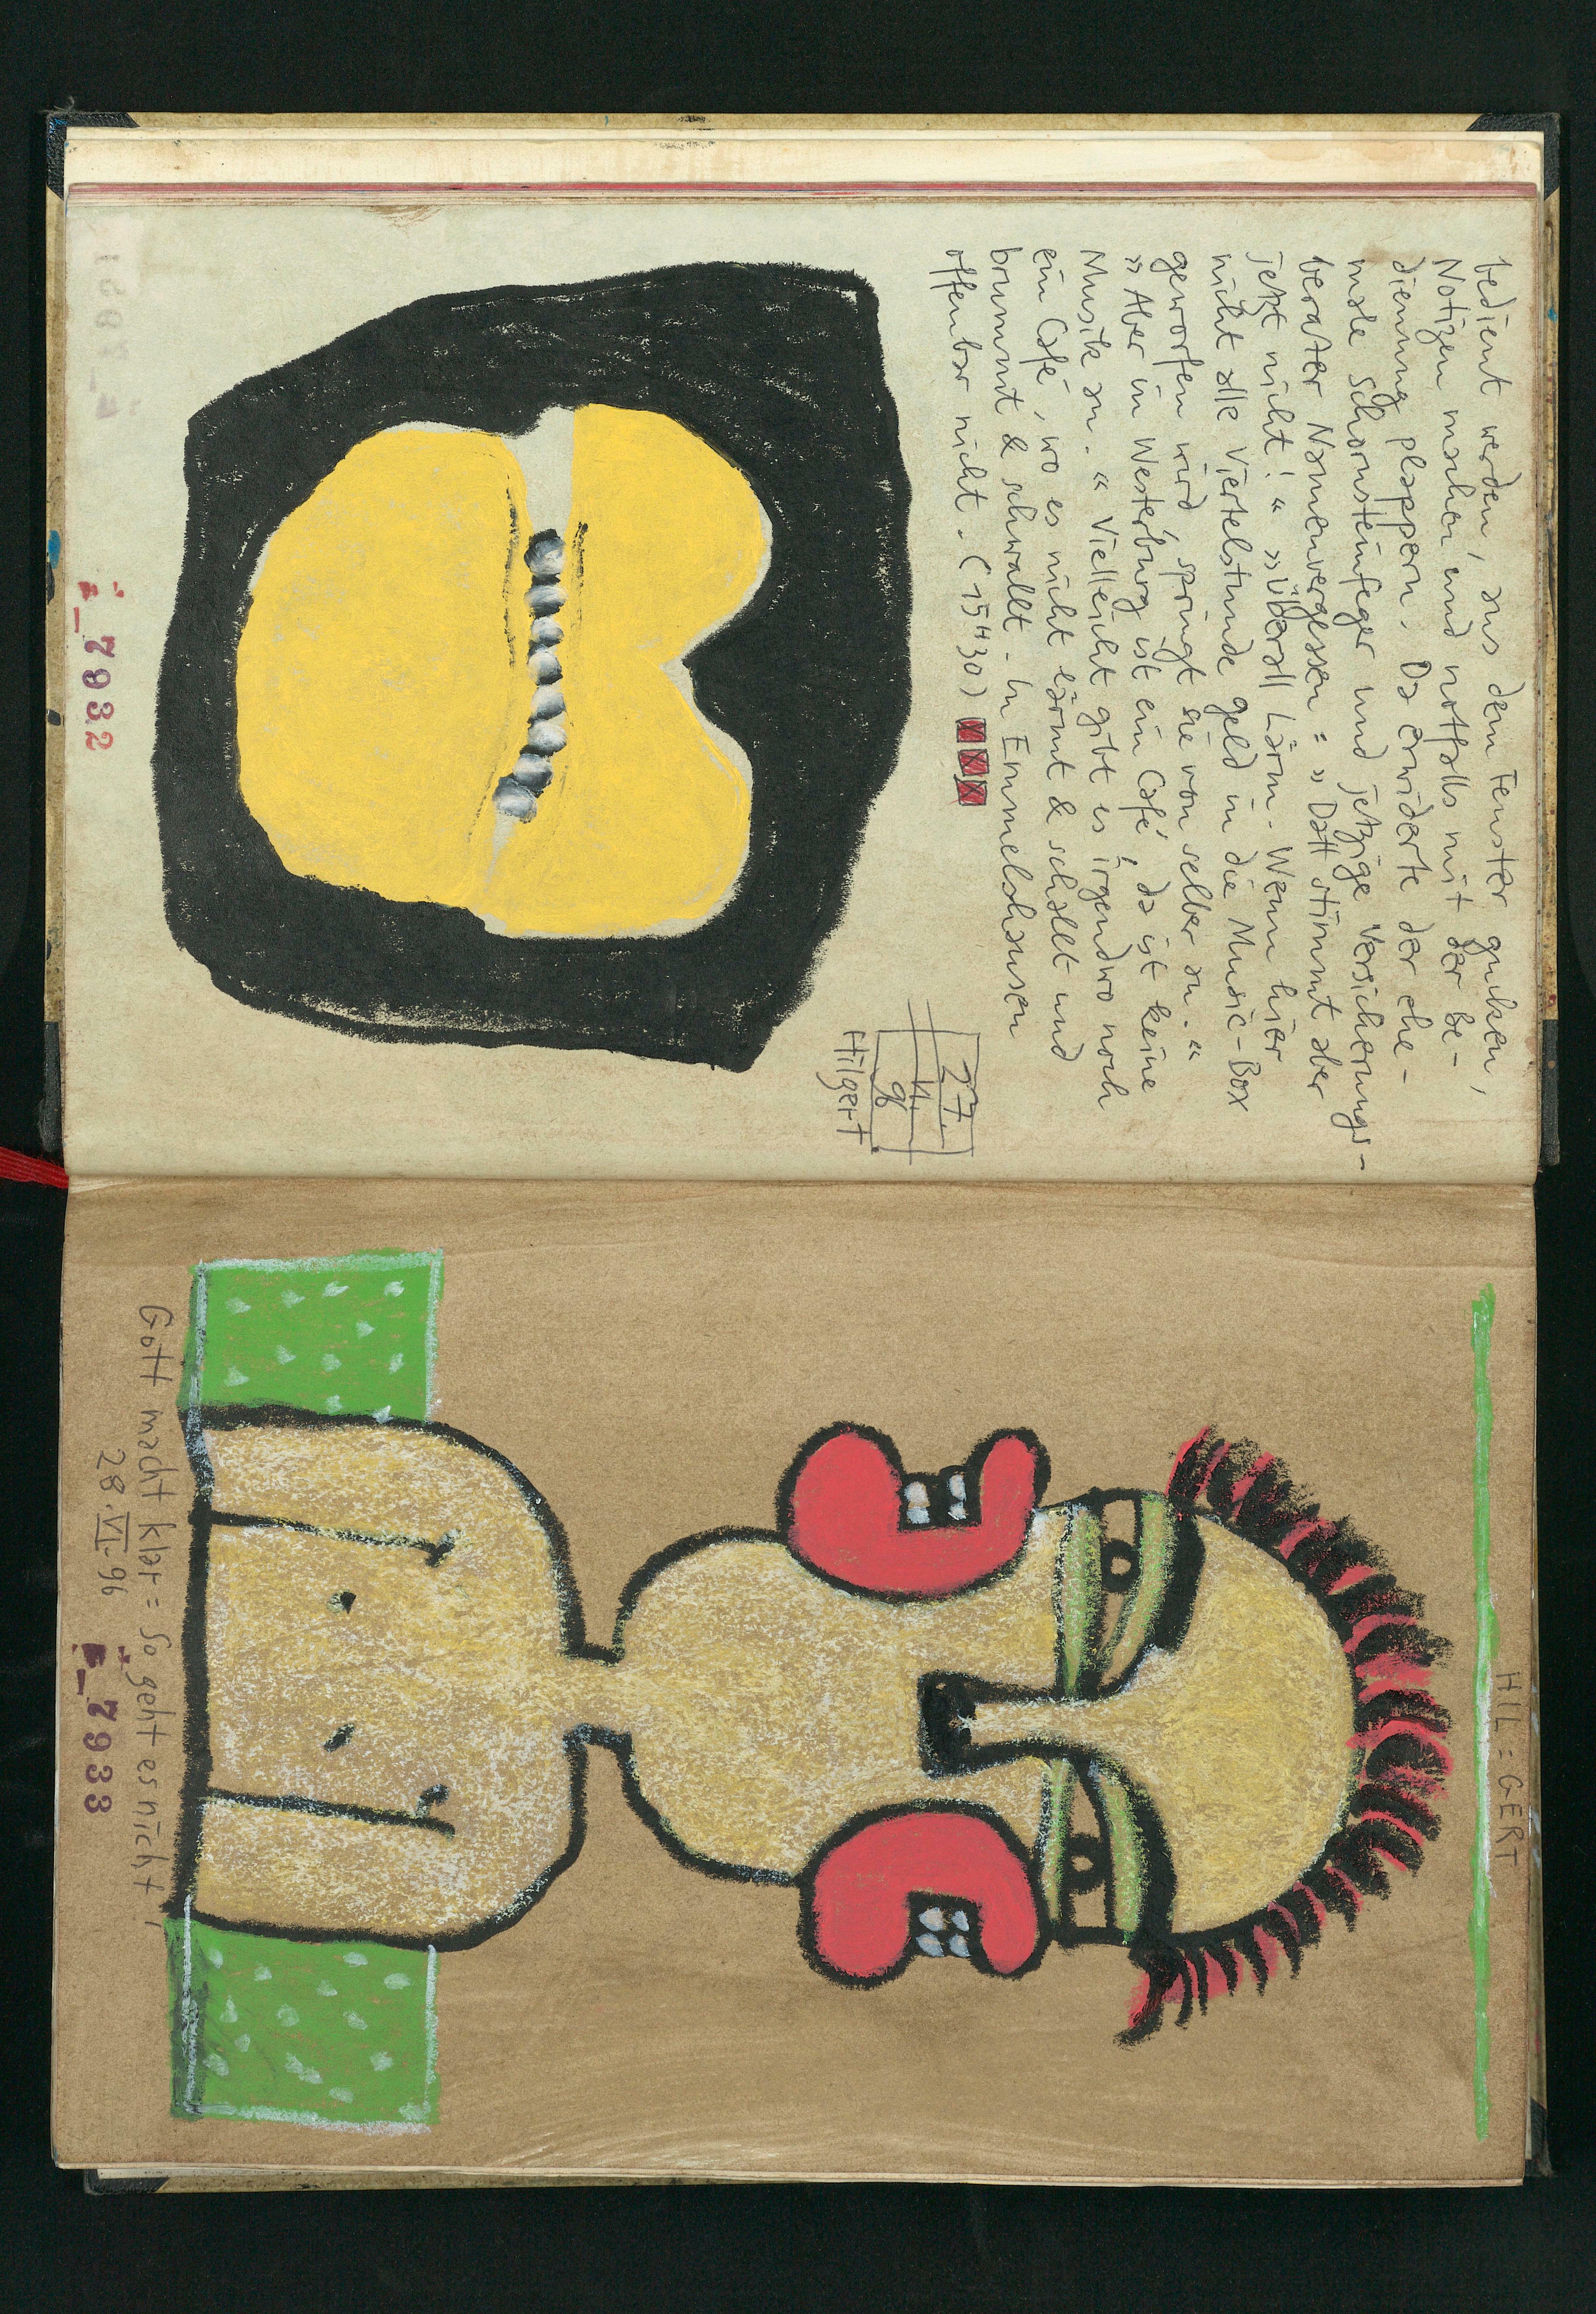 bedient werden, aus dem Fenster gucken,
Notizen machen und notfalls mit der Be-
dienung plappern. Da erwiderte der ehe-
male Schornsteinfeger und jetzige Versicherungs-
berater Namenvergessen: „Datt stimmt aber
jetzt nicht!“ „Überall Lärm. Wenn hier
nicht alle Viertelstunde Geld in die Music-Box
geworfen wird, springt sie von selber an.“
„Aber in Westerburg ist ein Café, da ist keine
Musik an.“ Vielleicht gibt es irgendwo noch
ein Café, wo es nicht lärmt & schallt und
brummt & schwallt. In Emmelshausen
offenbar nicht. (15H30)
27.
VI.
96
Hilgert.
i_7932
HIL=GERT
Gott macht klar = So geht es nicht!
28.VI.96
i_7933